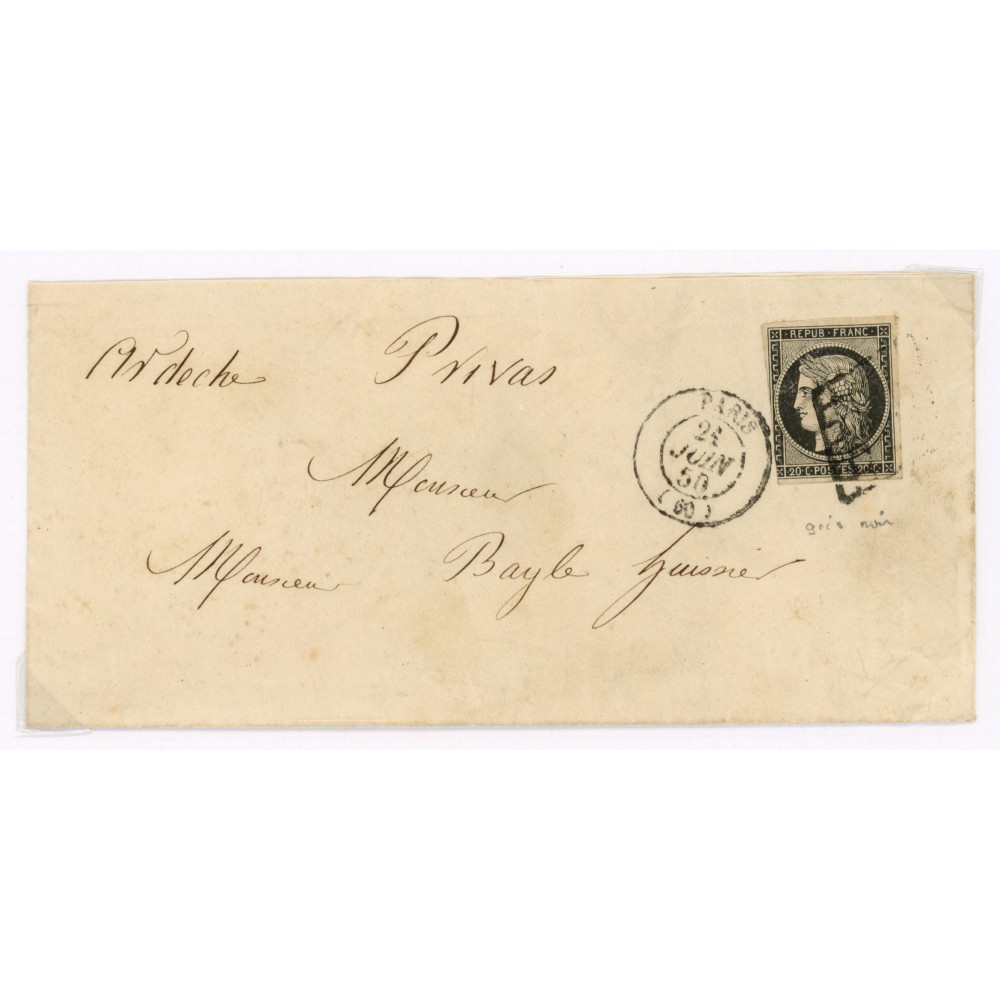 REPUB·FRANC·
20·C·POSTES·20·C·
Ardeche Privas
PARIS
21
JUIN
50
(60)
gris noir
Monsieur
Monsieur Bayle huissier